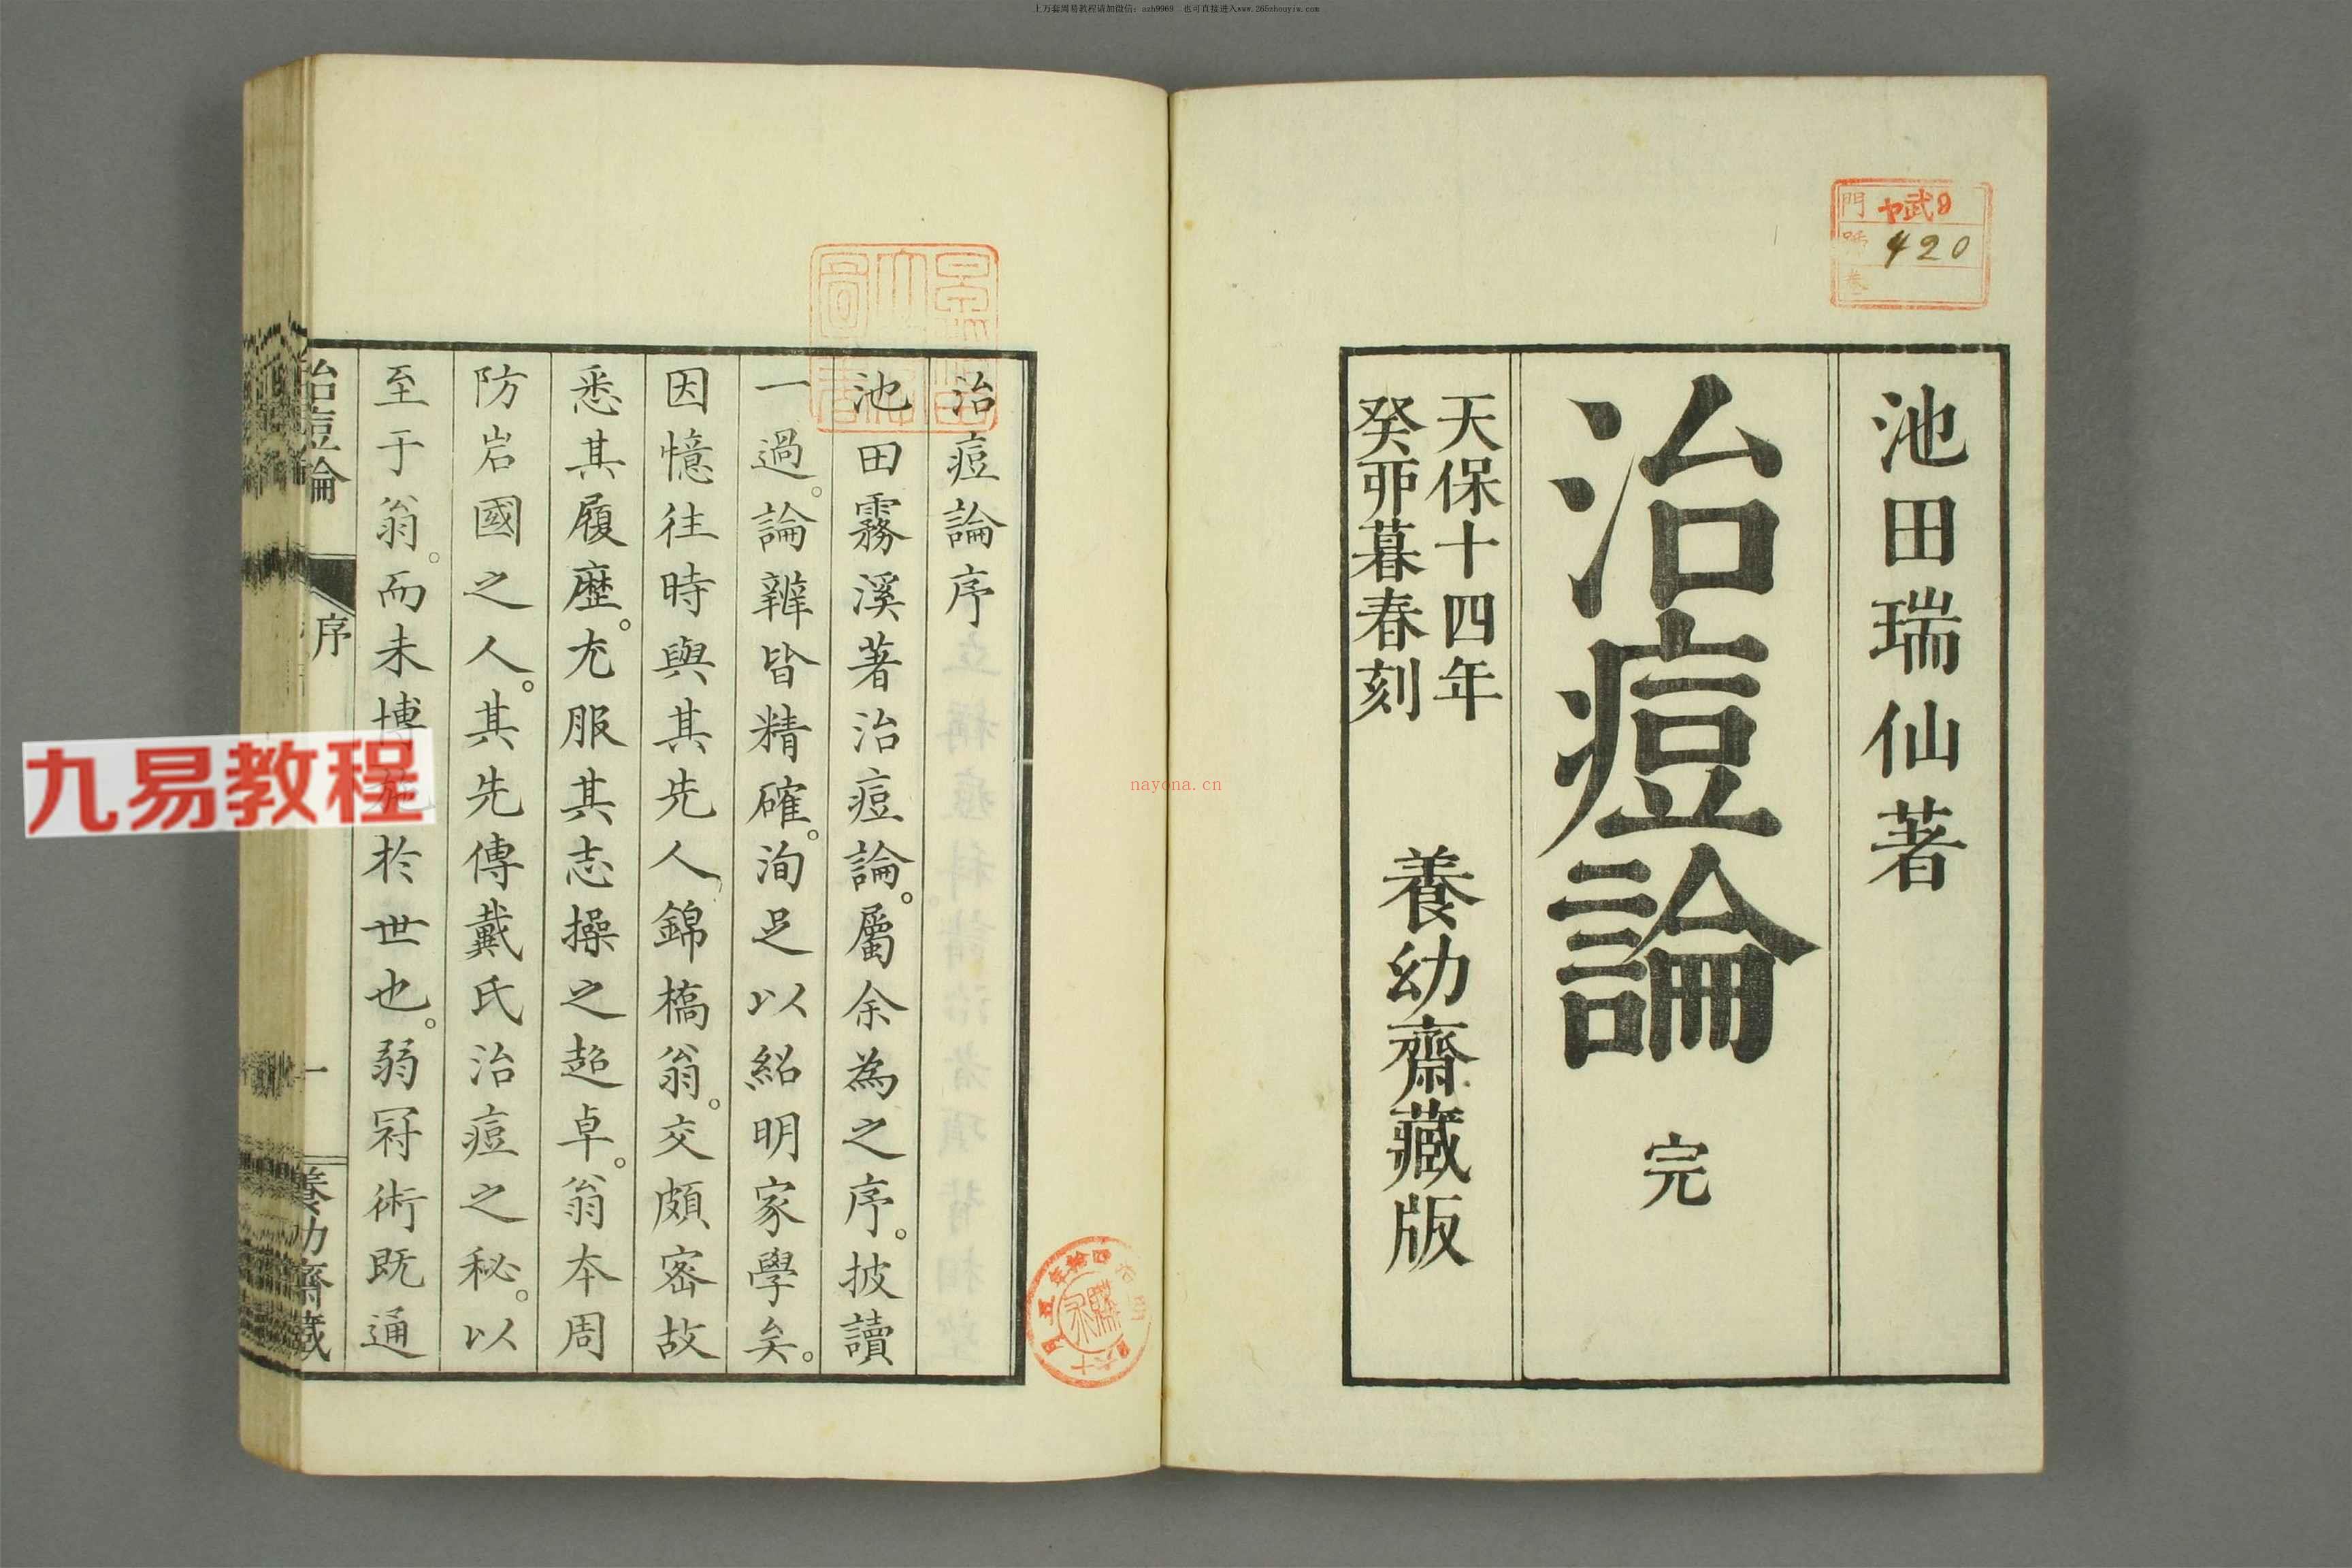 上万套周易教程请加微信：azh9969 也可直接进入www.265zhouyiw.com
門 武9
號 420
卷
池田瑞仙著
治痘論 完
天保十四年
癸卯暮春刻
養幼齋藏版
治痘論序
池田霧溪著治痘論。屬余為之序。披讀
一過。論辨皆精確。洵足以紹明家學矣。
因憶往時與其先人錦橋翁。交頗密故
悉其履歷。尤服其志操之超卓。翁本周
防岩國之人。其先傳戴氏治痘之秘。以
至于翁。而未博施於世也。弱冠術既通
治痘論 序 一 養幼齋藏
九易教程
nayona.cn